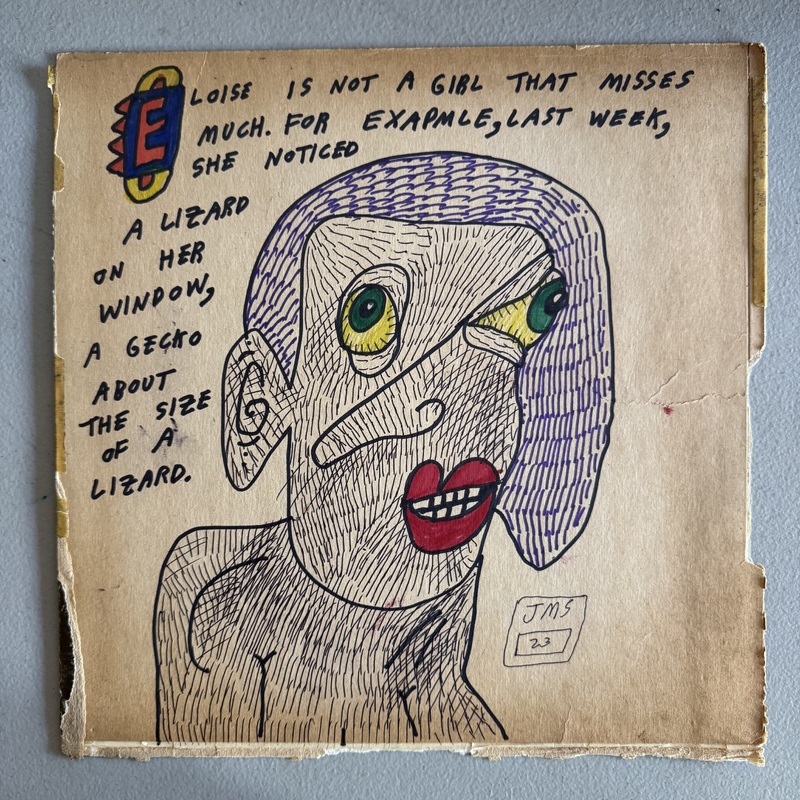 ELOISE IS NOT A GIRL THAT MISSES
MUCH. FOR EXAPMLE, LAST WEEK,
SHE NOTICED
A LIZARD
ON HER
WINDOW,
A GECKO
ABOUT
THE SIZE
OF A
LIZARD.
JMS
23